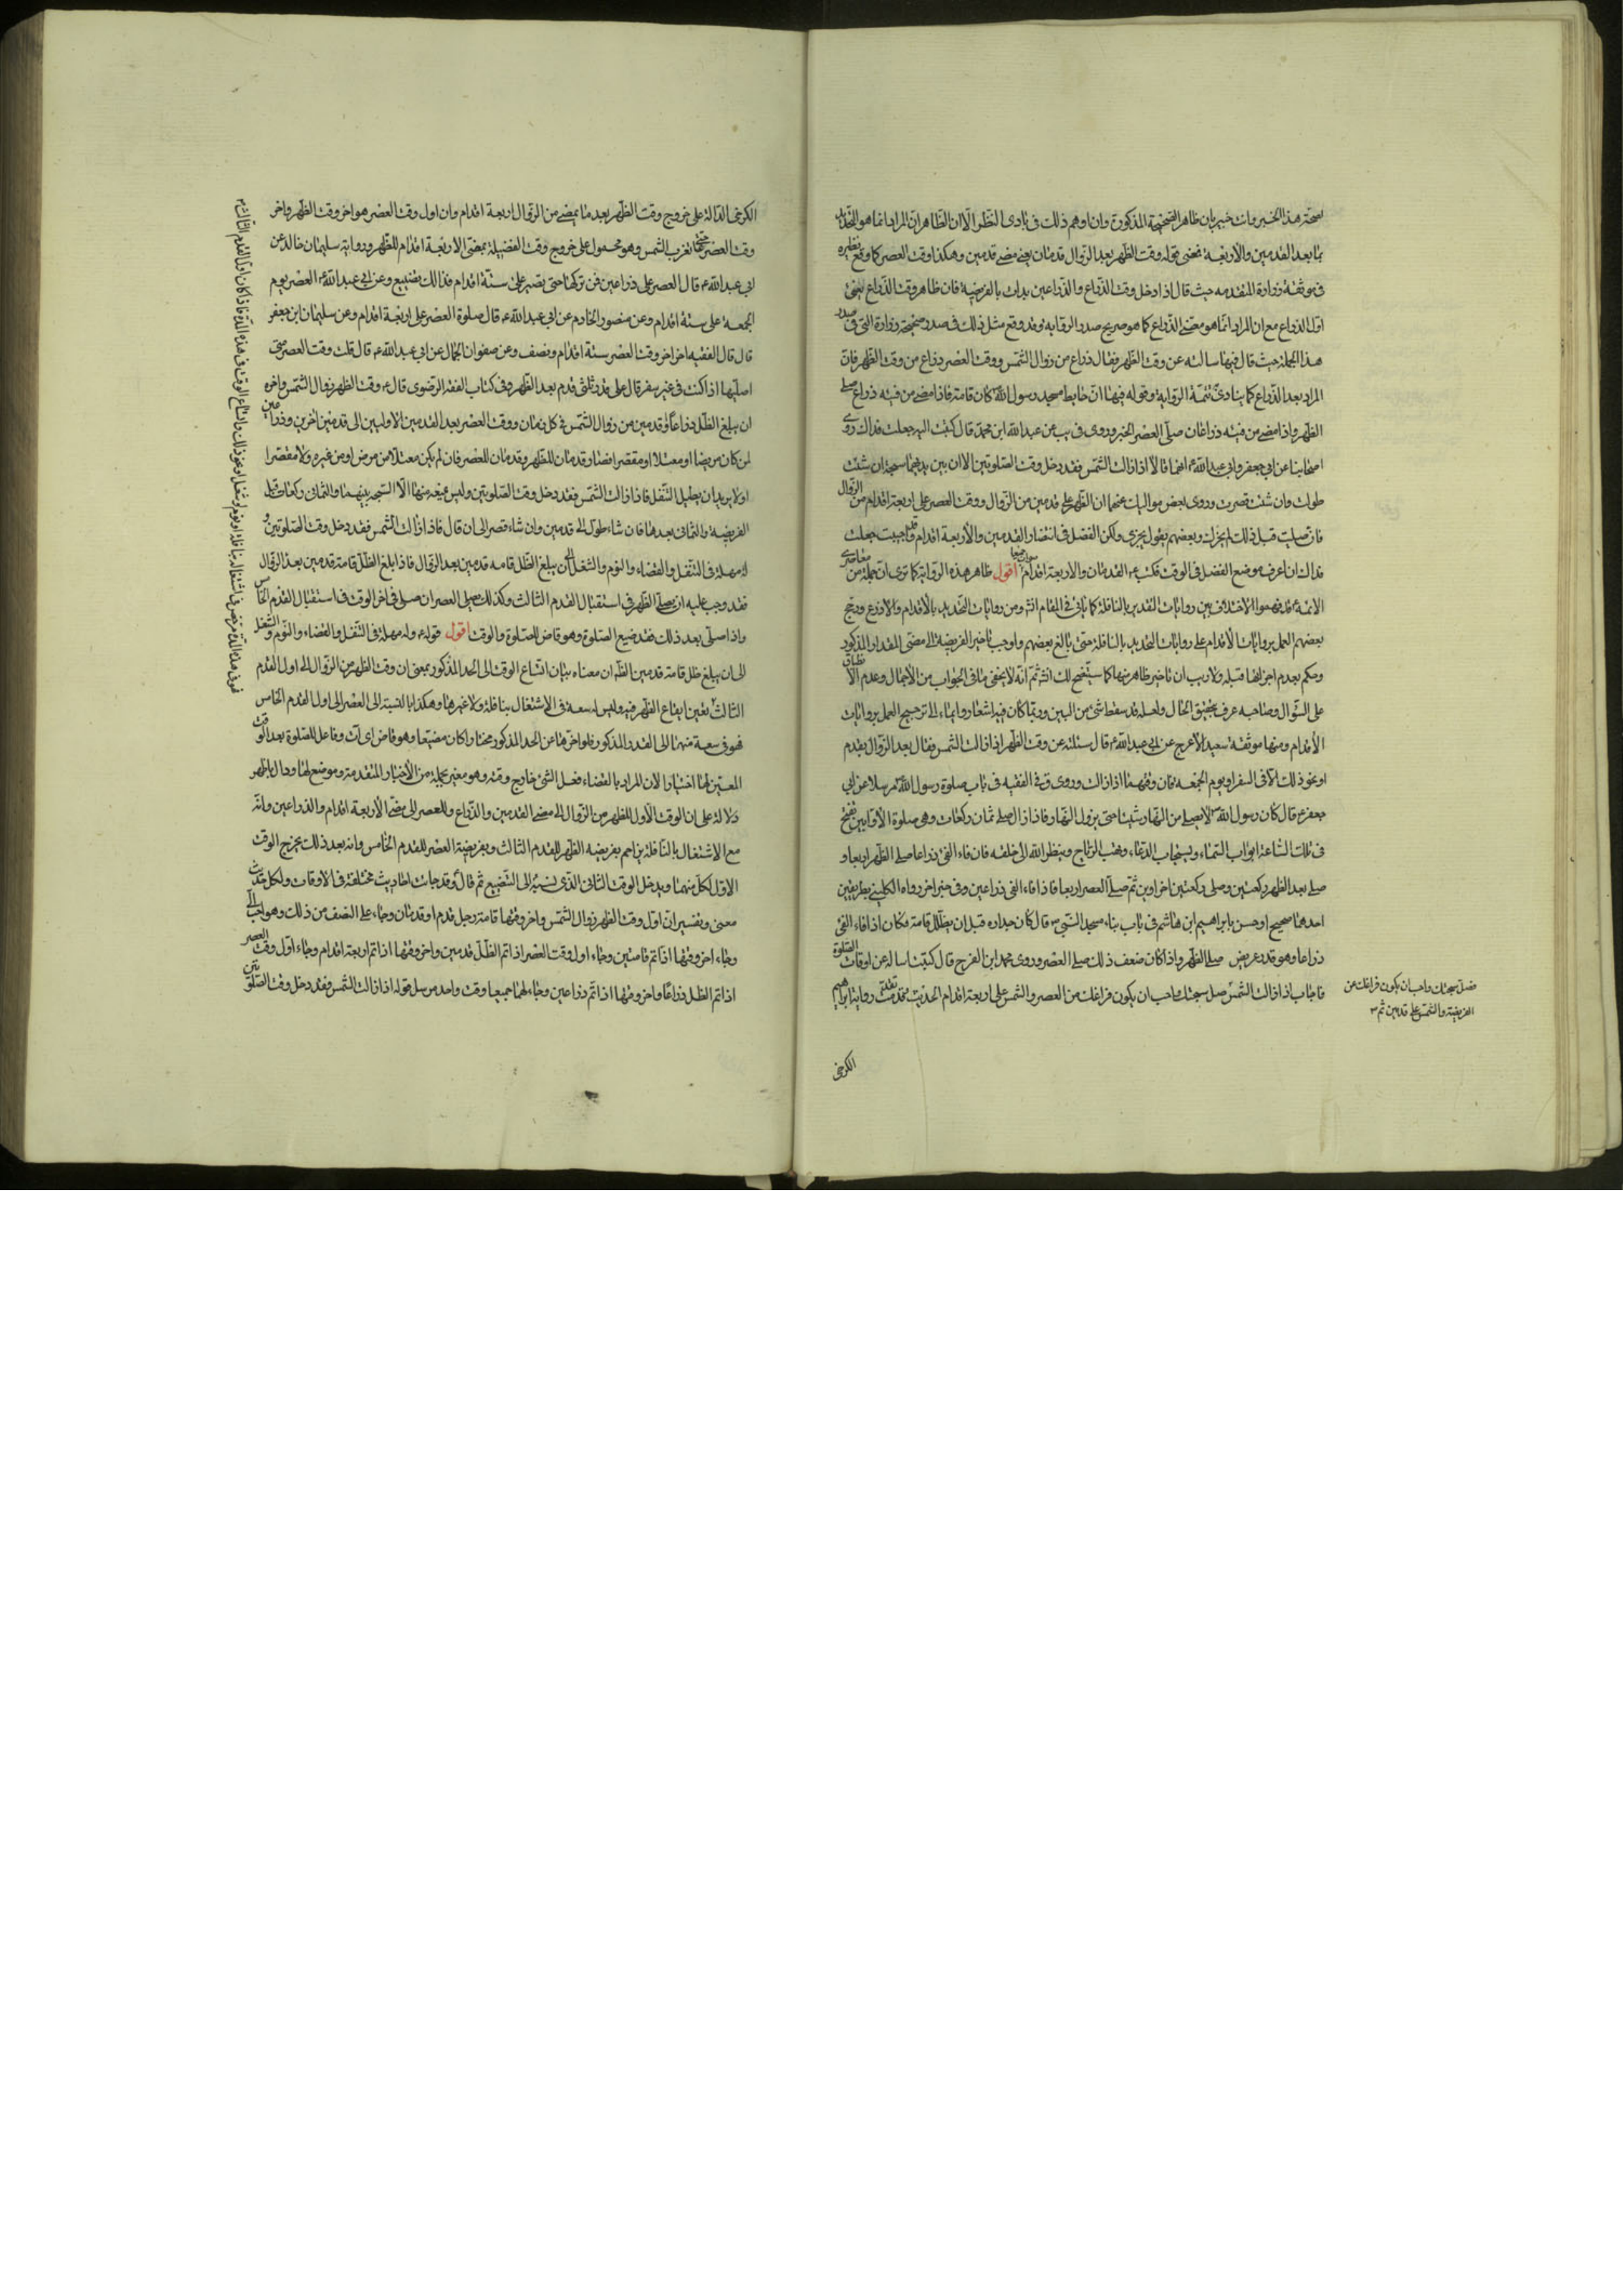 لصحة هذا الخبر وانت خبير بان ظاهر الصحيحة المذكورة وان اوهم ذلك فى بادى النظر الا ان الظاهر ان المراد انما هو التحديد
بما بعد القدمين والاربعة فمعنى قوله وقت الظهر بعد الزوال قدمان يعنى مضى قدمين وهكذا وقت العصر كما وقع نظيره
فى موثقة زرارة المتقدمه حيث قال اذا دخل وقت الذراع والذراعين بدات بالفريضة فان ظاهر وقت الذراع يعنى
اول الذراع مع ان المراد انما هو مضى الذراع كما هو صريح صدر الرواية وقد وقع مثل ذلك فى صدر صحيحة زرارة التى فى صدر
هذا الجملة حيث قال فيها سالته عن وقت الظهر فقال ذراع من زوال الشمس ووقت العصر ذراع من وقت الظهر فان
المراد بعد الذراع كما ينادى تتمة الرواية وقوله فيها ان حايط مسجد رسول الله كان قامة فاذا مضى من فيئه ذراع صلى
الظهر واذا مضى من فيئه ذراعان صلى العصر الخبر وروى فى يب عن عبد الله ابن محمد قال كتبت اليه جعلت فداك روى
اصحابنا عن ابى جعفر وابى عبد الله ع انهما قالا اذا زالت الشمس فقد دخل وقت الصلوتين الا ان بين يديهما سبحة ان شئت
طولت وان شئت قصرت وروى بعض مواليك عنهما ان الظهر على قدمين من الزوال ووقت العصر على اربعة اقدام من الزوال
فان صليت قبل ذلك لم يجزك وبعضهم يقول يجزى ولكن الفضل فى انتظار القدمين والاربعة اقدام وقد احببت جعلت
فداك ان اعرف موضع الفضل فى الوقت فكتب ع القدمان والاربعة اقدام صواب جميعا اقول ظاهر هذه الرواية كما ترى ان جملة من معاصرى
الائمة ع قد فهموا الاختلاف بين روايات التقدير بالنافلة كما ياتى فى المقام انش ومن روايات التحديد بالاقدام والاذرع ورجح
بعضهم العمل بروايات الاقدام على روايات التحديد بالنافلة حتى بالغ بعضهم واوجب تاخير الفريضة الى مضى المقدار المذكور
وحكم بعدم اجزائها قبله ولا ريب ان تاخير ظاهر منها كما سيتضح لك انش ثم انه لا يخفى ما فى الجواب من الاجمال وعدم الانطباق
على السوال وصاحبه عرف بحقيق الحال ولعله قد سقط شئ من البين وربما كان فيه اشعار وايماء الى ترجيح العمل بروايات
الاقدام ومنها موثقة سعيد الاعرج عن ابى عبد الله ع قال سئلته عن وقت الظهر اذا زالت الشمس فقال بعد الزوال بقدم
او نحو ذلك الا فى السفر او يوم الجمعه فان وقتهما اذا زالت وروى ق فى الفقيه فى باب صلوة رسول الله ص مرسلا عن ابى
جعفر ع قال كان رسول الله ص لا يصلى من النهار شيئا حتى يزول النهار فاذا زال صلى ثمان ركعات وهى صلوة الاوابين تفتح
فى تلك الساعة ابواب السماء ويستجاب الدعاء وتهب الرياح وينظر الله الى خلقه فان فاء الفئ ذراعا صلى الظهر اربعا و
صلى بعد الظهر ركعتين وصلى ركعتين اخراوين ثم صلى العصر اربعا فاذا فاء الفئ ذراعين وفى خبر اخر رواه الكلينى بطريقين
احدهما صحيح او حسن بابراهيم ابن هاشم فى باب بناء مسجد النبى ص قال كان جداره قبل ان يظلل قامة فكان اذا فاء الفئ
ذراعا وهو قدر مربض صلى الظهر واذا كان ضعف ذلك صلى العصر وروى محمد ابن الفرج قال كتبت اساله عن اوقات الصلوة
فاجاب اذا زالت الشمس صل سبحتك واحب ان يكون فراغك من العصر والشمس على اربعة اقدام الحديث تقدمت رواية ابراهيم
فصل سبحتك واحب ان يكون فراغك من
الفريضة والشمس على قدمين ثم ص
الكرخى
الكرخى الدالة على خروج وقت الظهر بعد ما يمضى من الزوال اربعة اقدام وان اول وقت العصر هو اخر وقت الظهر واخر
وقت العصر حتى تغرب الشمس وهو محمول على خروج وقت الفضيلة بمضى الاربعة اقدام للظهر ورواية سليمان خالد عن
ابى عبد الله ع قال العصر على ذراعين فمن تركها حتى تصير على ستة اقدام فذالك تضييع وعن ابى عبد الله ع العصر يوم
الجمعة على ستة اقدام وعن منصور الخادم عن ابى عبد الله ع قال صلوة العصر على اربعة اقدام وعن سليمان ابن جعفر
قال قال الفقيه اخر اخر وقت العصر ستة اقدام ونصف وعن صفوان الجمال عن ابى عبد الله ع قال قلت وقت العصر متى
اصليها اذا كنت فى غير سفر قال على قدر ثلثى قدم بعد الظهر وفى كتاب الفقه الرضوى قال ع وقت الظهر زوال الشمس واخره
ان يبلغ الظل ذراعا او قدمين من زوال الشمس فى كل زمان ووقت العصر بعد القدمين الاولين الى قدمين اخرين وذراعين
لمن كان مريضا او معتلا او مقصرا فصار قدمان للظهر وقدمان للعصر فان لم يكن معتلا من مرض او من غيره ولا مقصرا
او لا يريد ان يطيل التنفل فاذا زالت الشمس فقد دخل وقت الصلوتين وليس يمنعه منها الا السبحة بينهما والثمانى ركعات قبل
الفريضة والثمانى بعدها فان شاء طول الى قدمين وان شاء قصر الى ان قال فاذا زالت الشمس فقد دخل وقت الصلوتين و
له مهلة فى التنفل والقضاء والنوم والشغل الى ان يبلغ الظل قامه قدمين بعد الزوال فاذا بلغ الظل قامة قدمين بعد الزوال
فقد وجب عليه ان يصلى الظهر فى استقبال القدم الثالث وكذلك يصلى العصر ان صلى فى اخر الوقت فى استقبال القدم الخامس
واذا صلى بعد ذلك فقد ضيع الصلوة وهو قاض للصلوة والوقت اقول قوله ع وله مهلة فى التنفل والقضاء والنوم والشغل
الى ان يبلغ ظل قامة قدمين الظ ان معناه بيان اتساع الوقت الى الحد المذكور بمعنى ان وقت الظهر من الزوال الى اول القدم
الثالث يعين ايقاع الظهر فيه وليس له سعة فى الاشتغال بنافلة ولا غيرها وهكذا بالنسبة الى العصر الى اول القدم الخامس
فهو فى سعة منهما الى القدر المذكور فلو اخرها عن الحد المذكور مختارا كان مضيعا وهو قاض اى آت وفاعل للصلوة بعد الوقت
المعين لها اختيارا لان المراد بالقضاء فعل الشئ خارج وقته وهو معين بجملة من الاخبار المتقدمة وموضع لها ودال باظهر
دلالة على ان الوقت الاول للظهر من الزوال الى مضى القدمين والذراع وللعصر الى مضى الاربعة اقدام والذراعين وانه
مع الاشتغال بالنافلة يزاحم بفريضه الظهر للقدم الثالث وبفريضة العصر للقدم الخامس وانه بعد ذلك يخرج الوقت
الاول لكل منهما ويدخل الوقت الثانى الذى نسبه الى التضييع ثم قال ع وقد جاءت احاديث مختلفة فى الاوقات ولكل حديث
معنى وتفسير ان اول وقت الظهر زوال الشمس واخر وقتها قامة رجل قدم او قدمان وجاء على النصف من ذلك وهو احب الى
وجاء اخر وقتها اذا تم قامتين وجاء اول وقت العصر اذا تم الظل قدمين واخر وقتها اذا تم اربعة اقدام وجاء اول وقت العصر
اذا تم الظل ذراعا واخر وقتها اذا تم ذراعين وجاء لهما جميعا وقت واحد مرسل قوله اذا زالت الشمس فقد دخل وقت الصلوتين